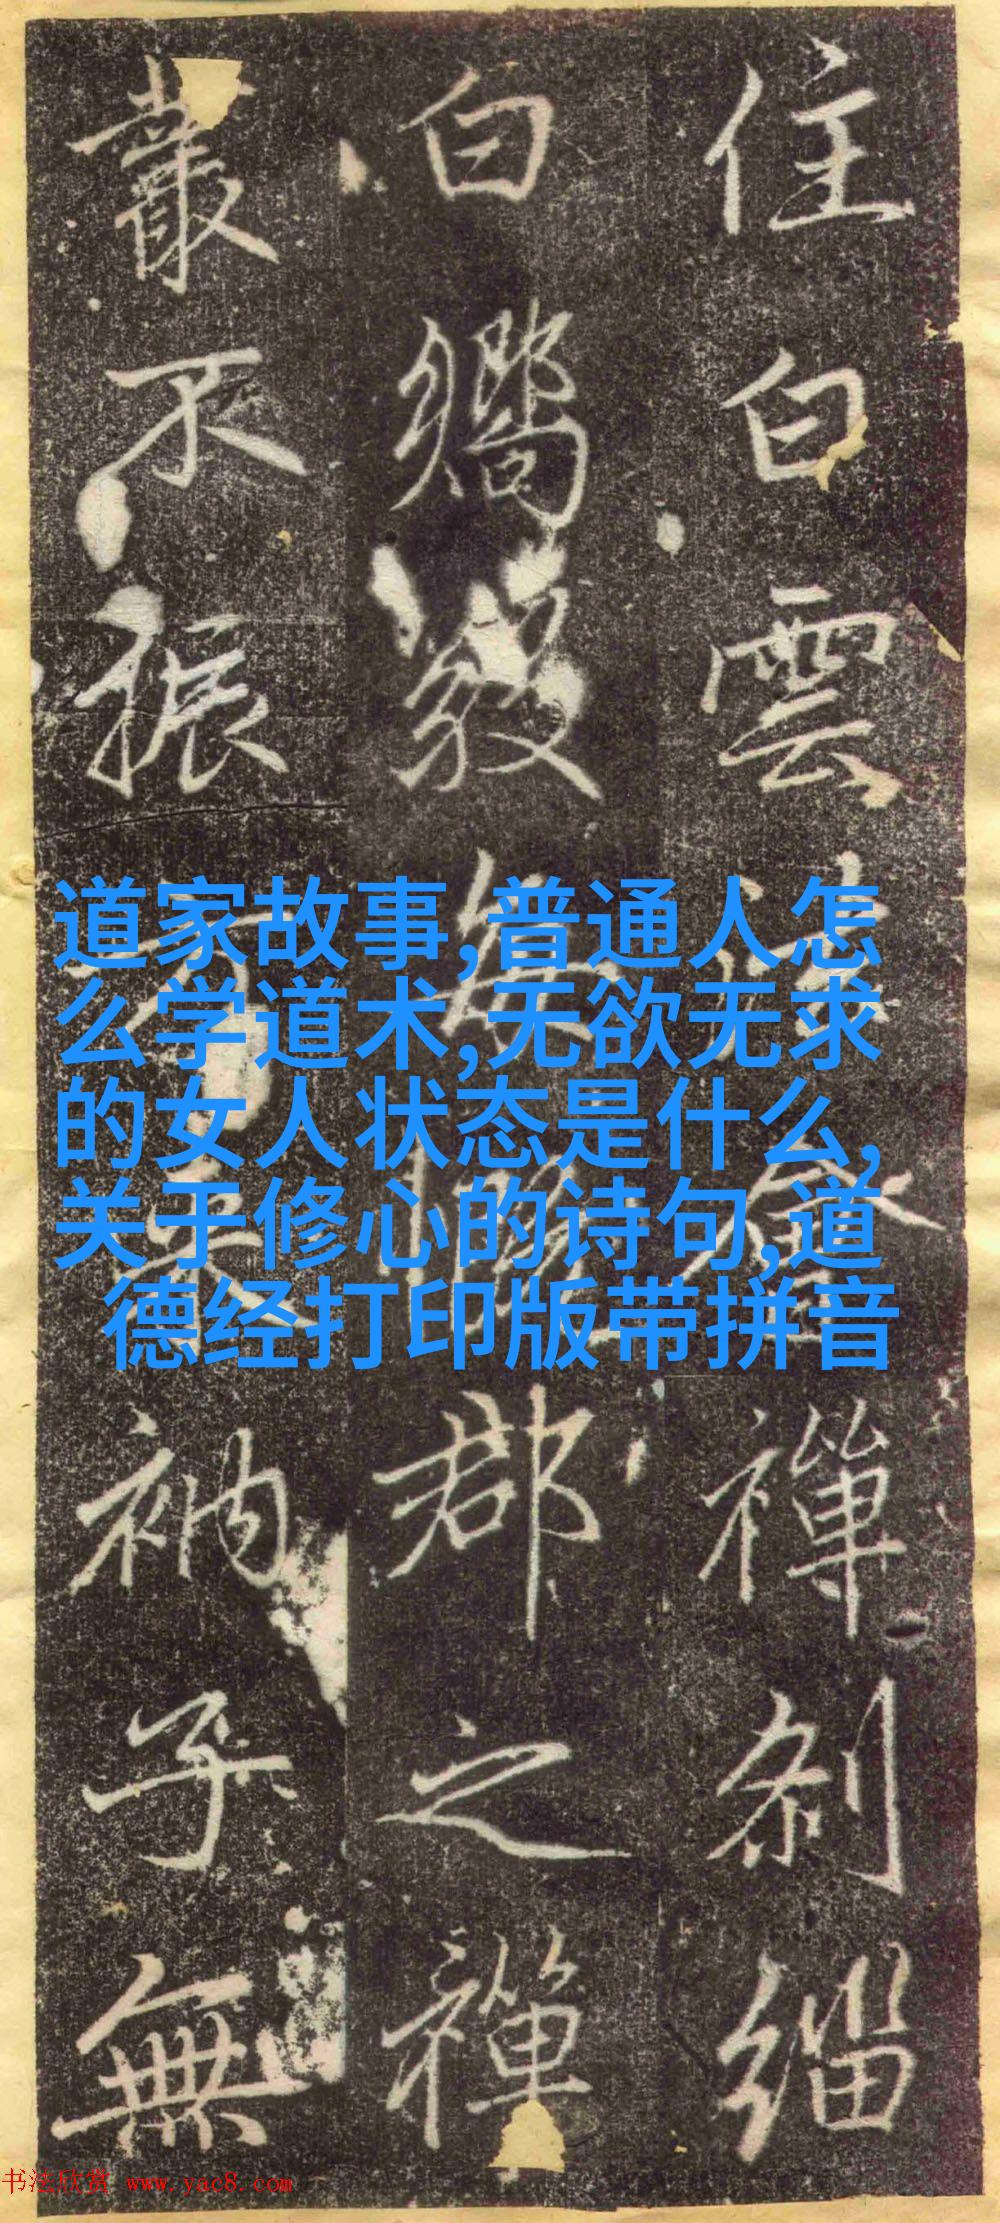 住白雲禪剎緇
白郡之禪
叢不振衲子無
道家故事,普通人怎
么学道术,无欲无求
的女人状态是什么,
关于修心的诗句,道
德经打印版带拼音
书法欣赏 www.yac8.com